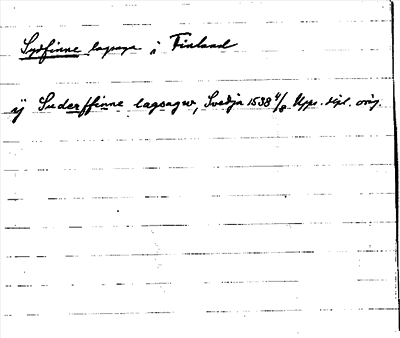 Sydfinne lagsaga i Finland
ij Suderffinne lagsagu, Svedja 1538 4/8 Upps. dipl. orig.